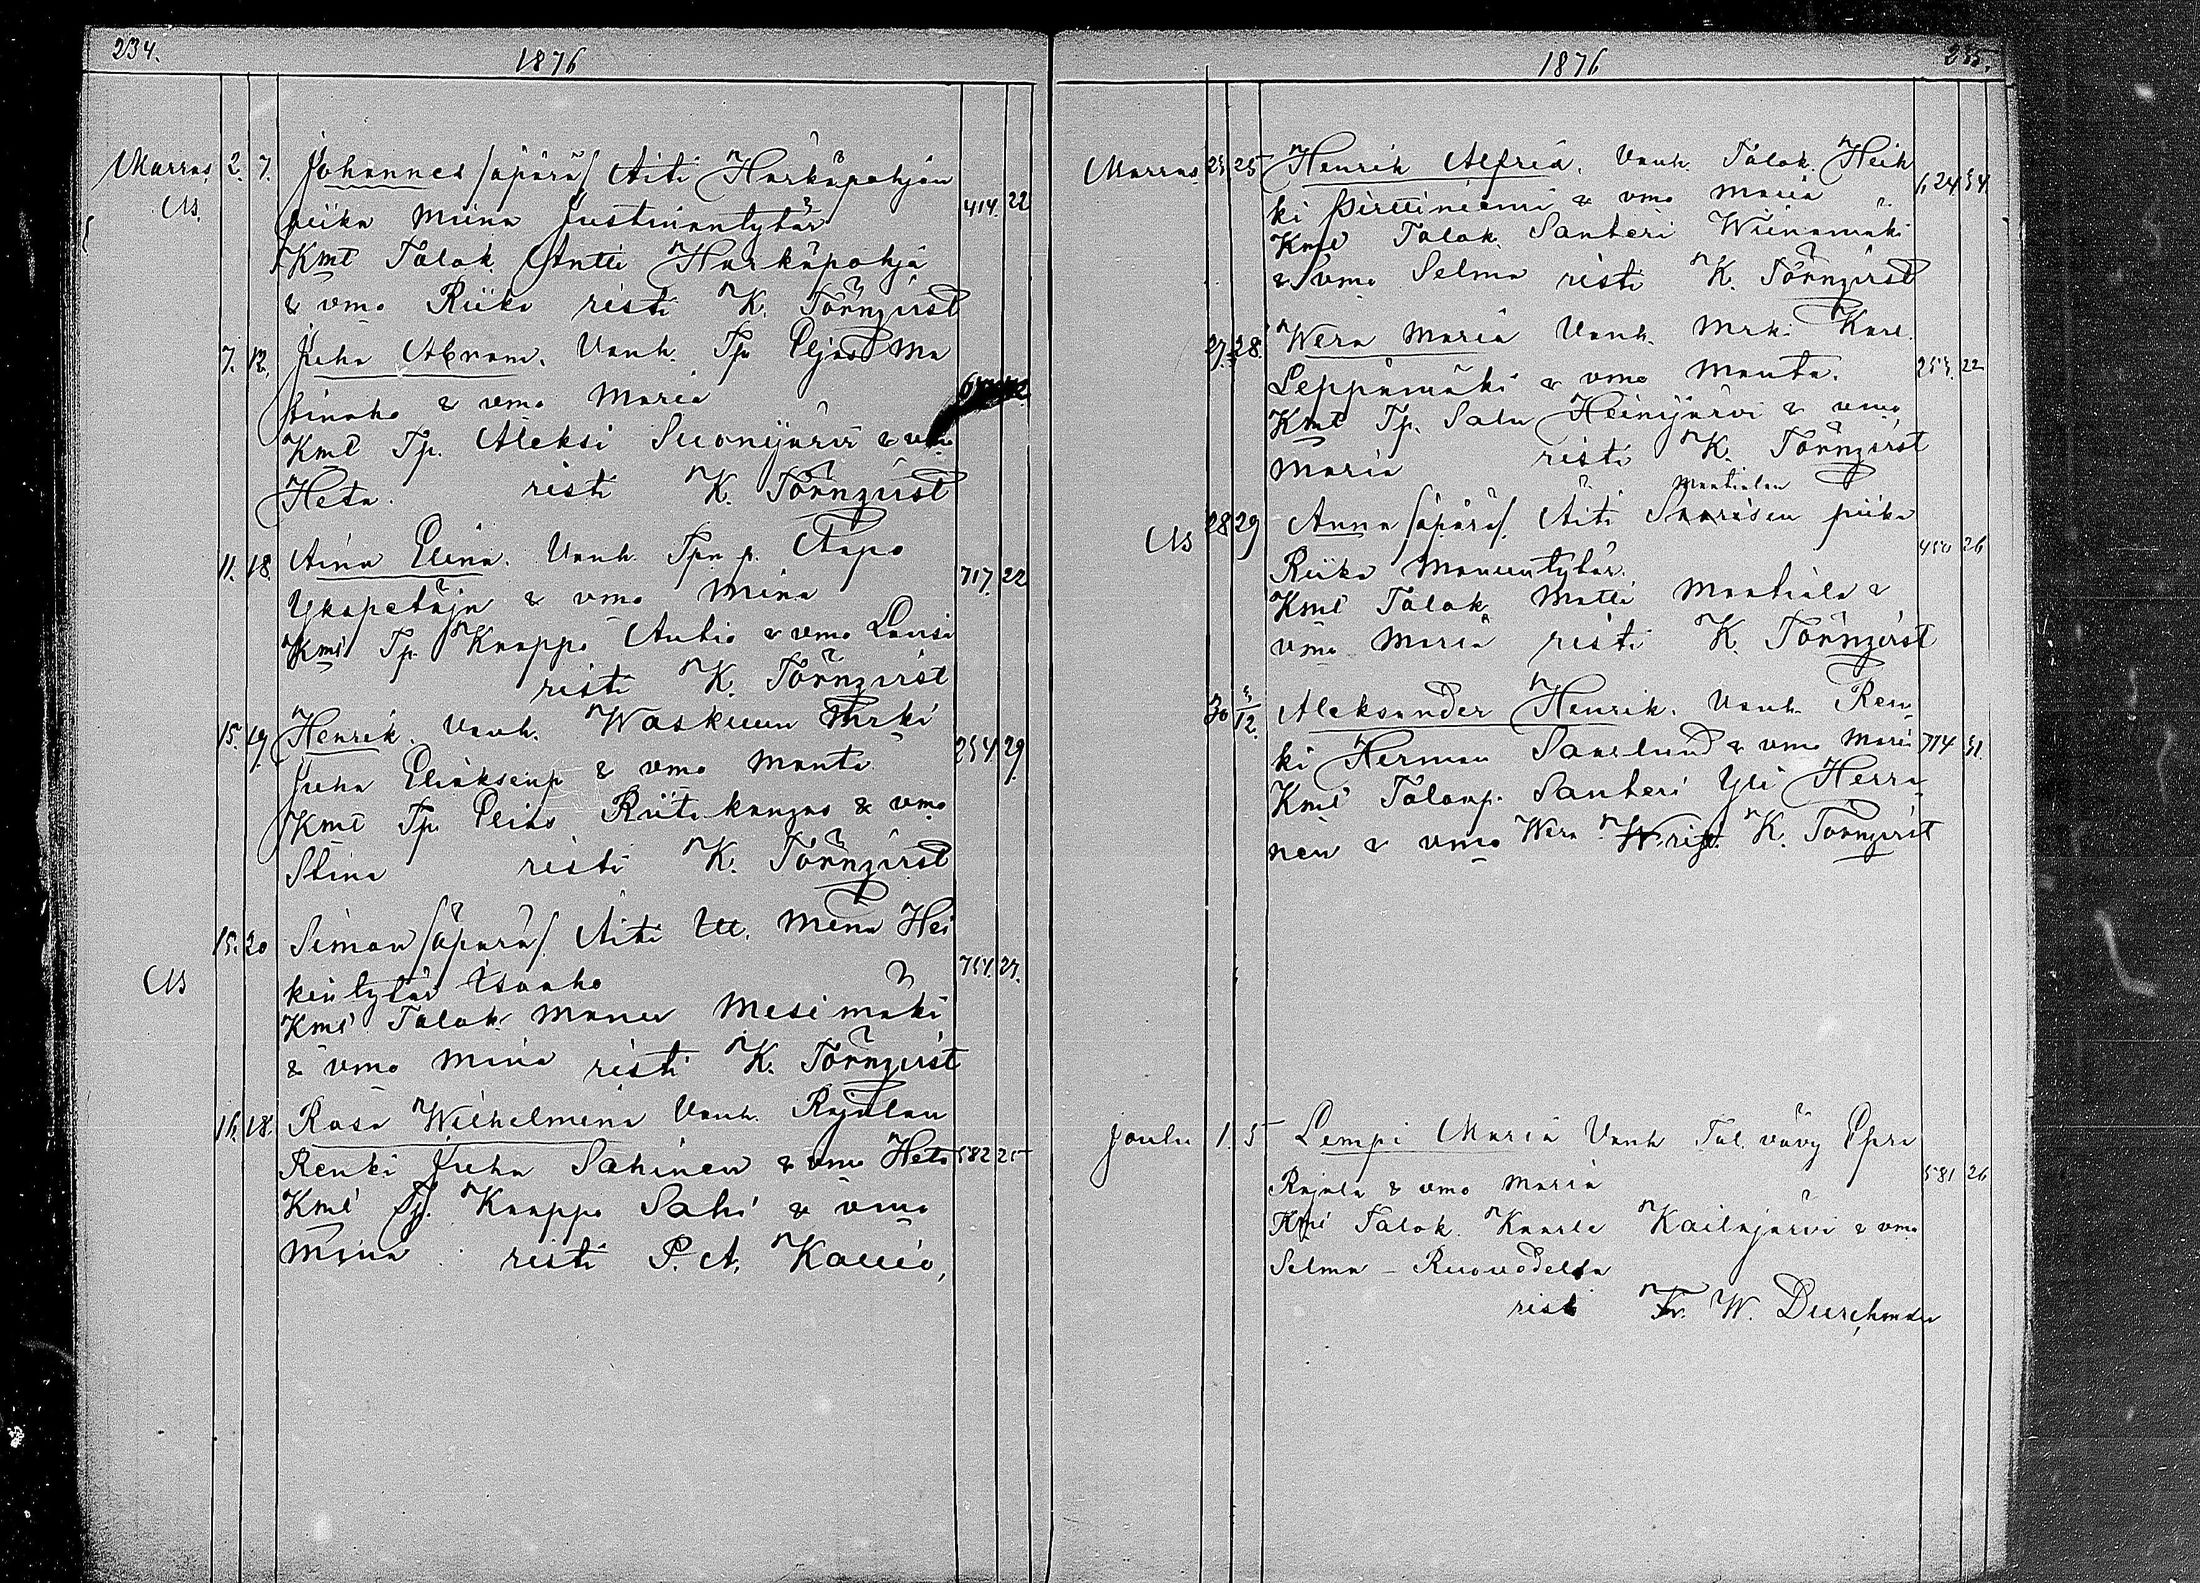 234.
1876
Marras. 2. 7. Johannes /äpärä/ Äiti Harkäpohjan
piika Miina Justiinantytär 414. 22
Kmt Talok. Antti Harkäpohja
& vmo Riika risti K. Törnqvist
7. 12. Juha Abram. Vanh. Tp. Eljas Ma
tinaho & vmo Maria
Kmt Tp. Aleksi Suonijärvi & vmo
Heta. risti K. Törnqvist
11. 18. Aina Elina. Vanh. Tpn p. Aapo
Ykspetäjä & vmo Mina 717. 22
Kmt Tp. Knappo Antio & vmo Lovisa
risti K. Törnqvist
15. 19. Henrik. Vanh. Waskuun Mrki
Juha Eliaksenp & vmo Manta 254 29.
Kmt Tp. Elias Riitakangas & vmo
Stina risti K. Törnqvist
15. 20 Simon /äpärä/. Äiti Itt. Mina Hei
kintytär Isoaho 754. 27.
Kmt Talok. Manu Mesimäki
& vmo Mina risti K. Törnqvist
16. 18. Rosa Wilhelmina Vanh. Rajalan
Renki Juha Sahinen & vmo Heta 582 25
Kmt Tp. Knappo Sahi & vmo
Mina risti P. A. Kallio,
1876
235.
Marras. 23 25 Henrik Alfred. Vanh. Talok. Heik
ki Pirttiniemi & vmo Maria 624 34
Kmt Talok. Santeri Wiinamäki
& vmo Selma risti K. Törnqvist
27. 28. Wera Maria Vanh. Mrk. Karl.
Leppämäki & vmo Manta. 253. 22
Kmt Tp. Salu Heinijärvi & vmo
Maria risti K. Törnqvist
Mantialan
28 29 Anna /äpärä/. Äiti Saarisen piika
Riika Manuntytär. 450 26
Kmt Talok. Matti Mantiala &
vmo Maria risti K. Törnqvist
30 3/12. Aleksander Henrik. Vanh. Ren
ki Herman Saarlund & vmo Mari 714 31.
Kmt Talonp. Santeri Yli Herra
nen & vmo Wera risti K. Törnqvist
Joulu 1. 5 Lempi Maria Vanh Tal. vävy Efra
Rajala & vmo Maria 581 26
Kmt Talok. Kaarle Kailajärvi & vmo
Selma - Ruovedellä
risti Fr. W. Durchman